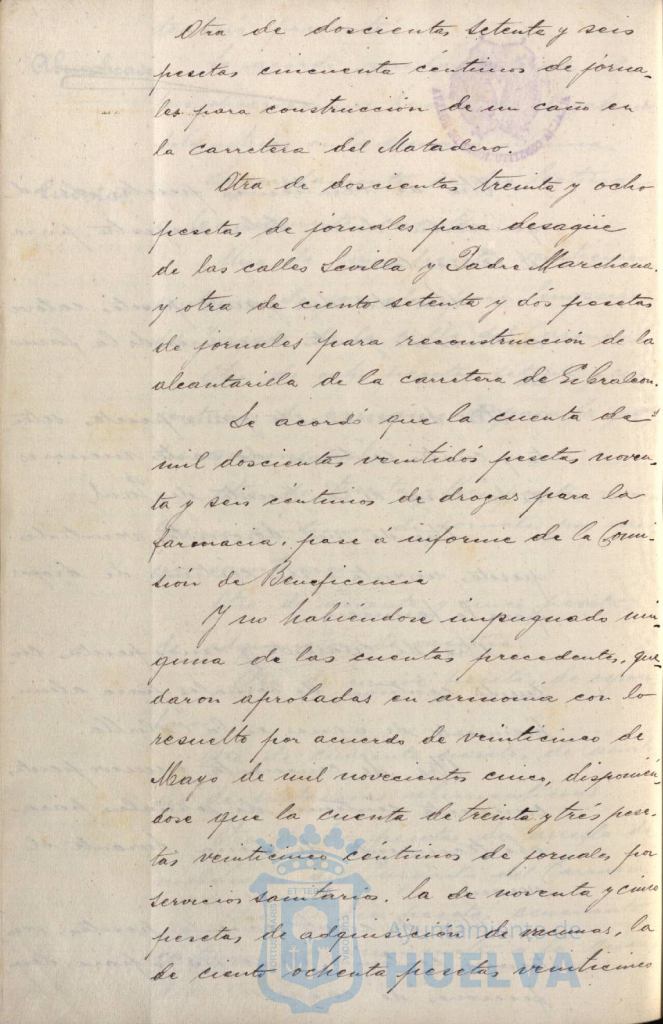 Otra de doscientas setenta y seis
pesetas cincuenta céntimos de jorna-
les para construcción de un caño en
la carretera del Matadero.
Otra de doscientas treinta y ocho
pesetas de jornales para desagüe
de las calles Sevilla y Padre Marchena.
y otra de ciento setenta y dós pesetas
de jornales para reconstrucción de la
alcantarilla de la carretera de Gibraleon.
Se acordó que la cuenta de
mil doscientas veintidós pesetas noven-
ta y seis céntimos de drogas para la
farmacia, pase á informe de la Comi-
sión de Beneficencia
Y no habiéndose impugnado nin-
guna de las cuentas precedentes, que-
daron aprobadas en armonía con lo
resuelto por acuerdo de veinticinco de
Mayo de mil novecientos cinco, disponién-
dose que la cuenta de treinta y trés pese-
tas veinticinco céntimos de jornales por
servicios sanitarios, la de noventa y cinco
pesetas de adquisición de vacunas, la
de ciento ochenta pesetas veinticinco
Ayuntamiento de
HUELVA